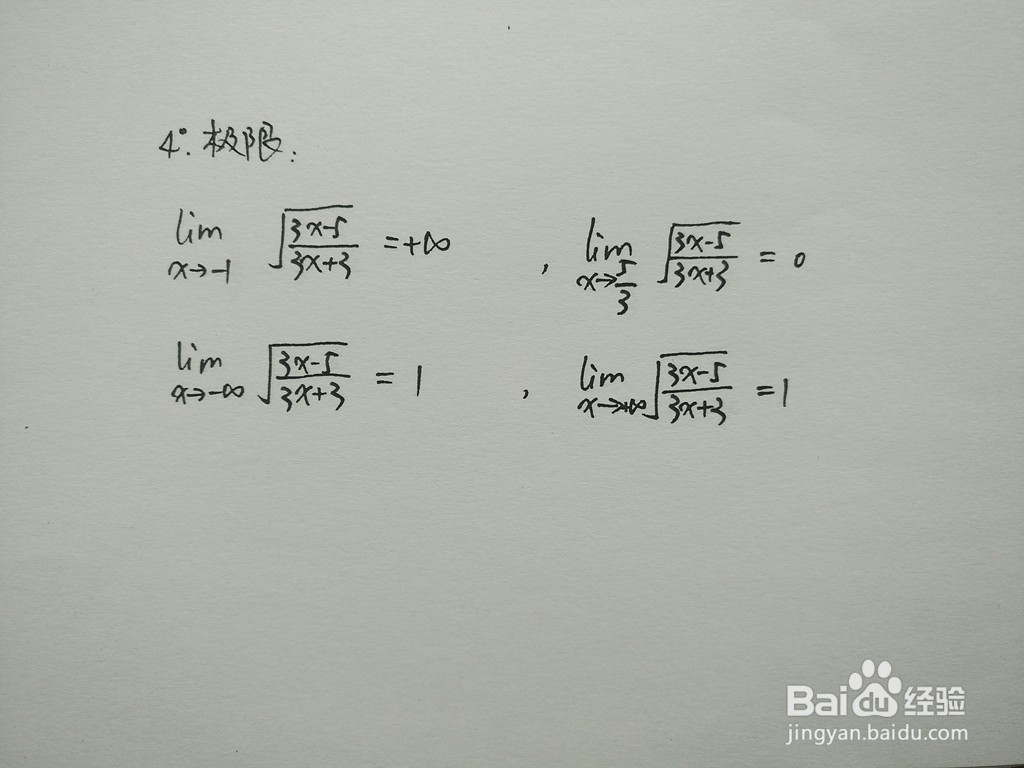 4°. 极限:
lim x→-1 √((3x-5)/(3x+3)) = +∞ , lim x→5/3 √((3x-5)/(3x+3)) = 0
lim x→-∞ √((3x-5)/(3x+3)) = 1 , lim x→+∞ √((3x-5)/(3x+3)) = 1
Baidu 经验
jingyan.baidu.com